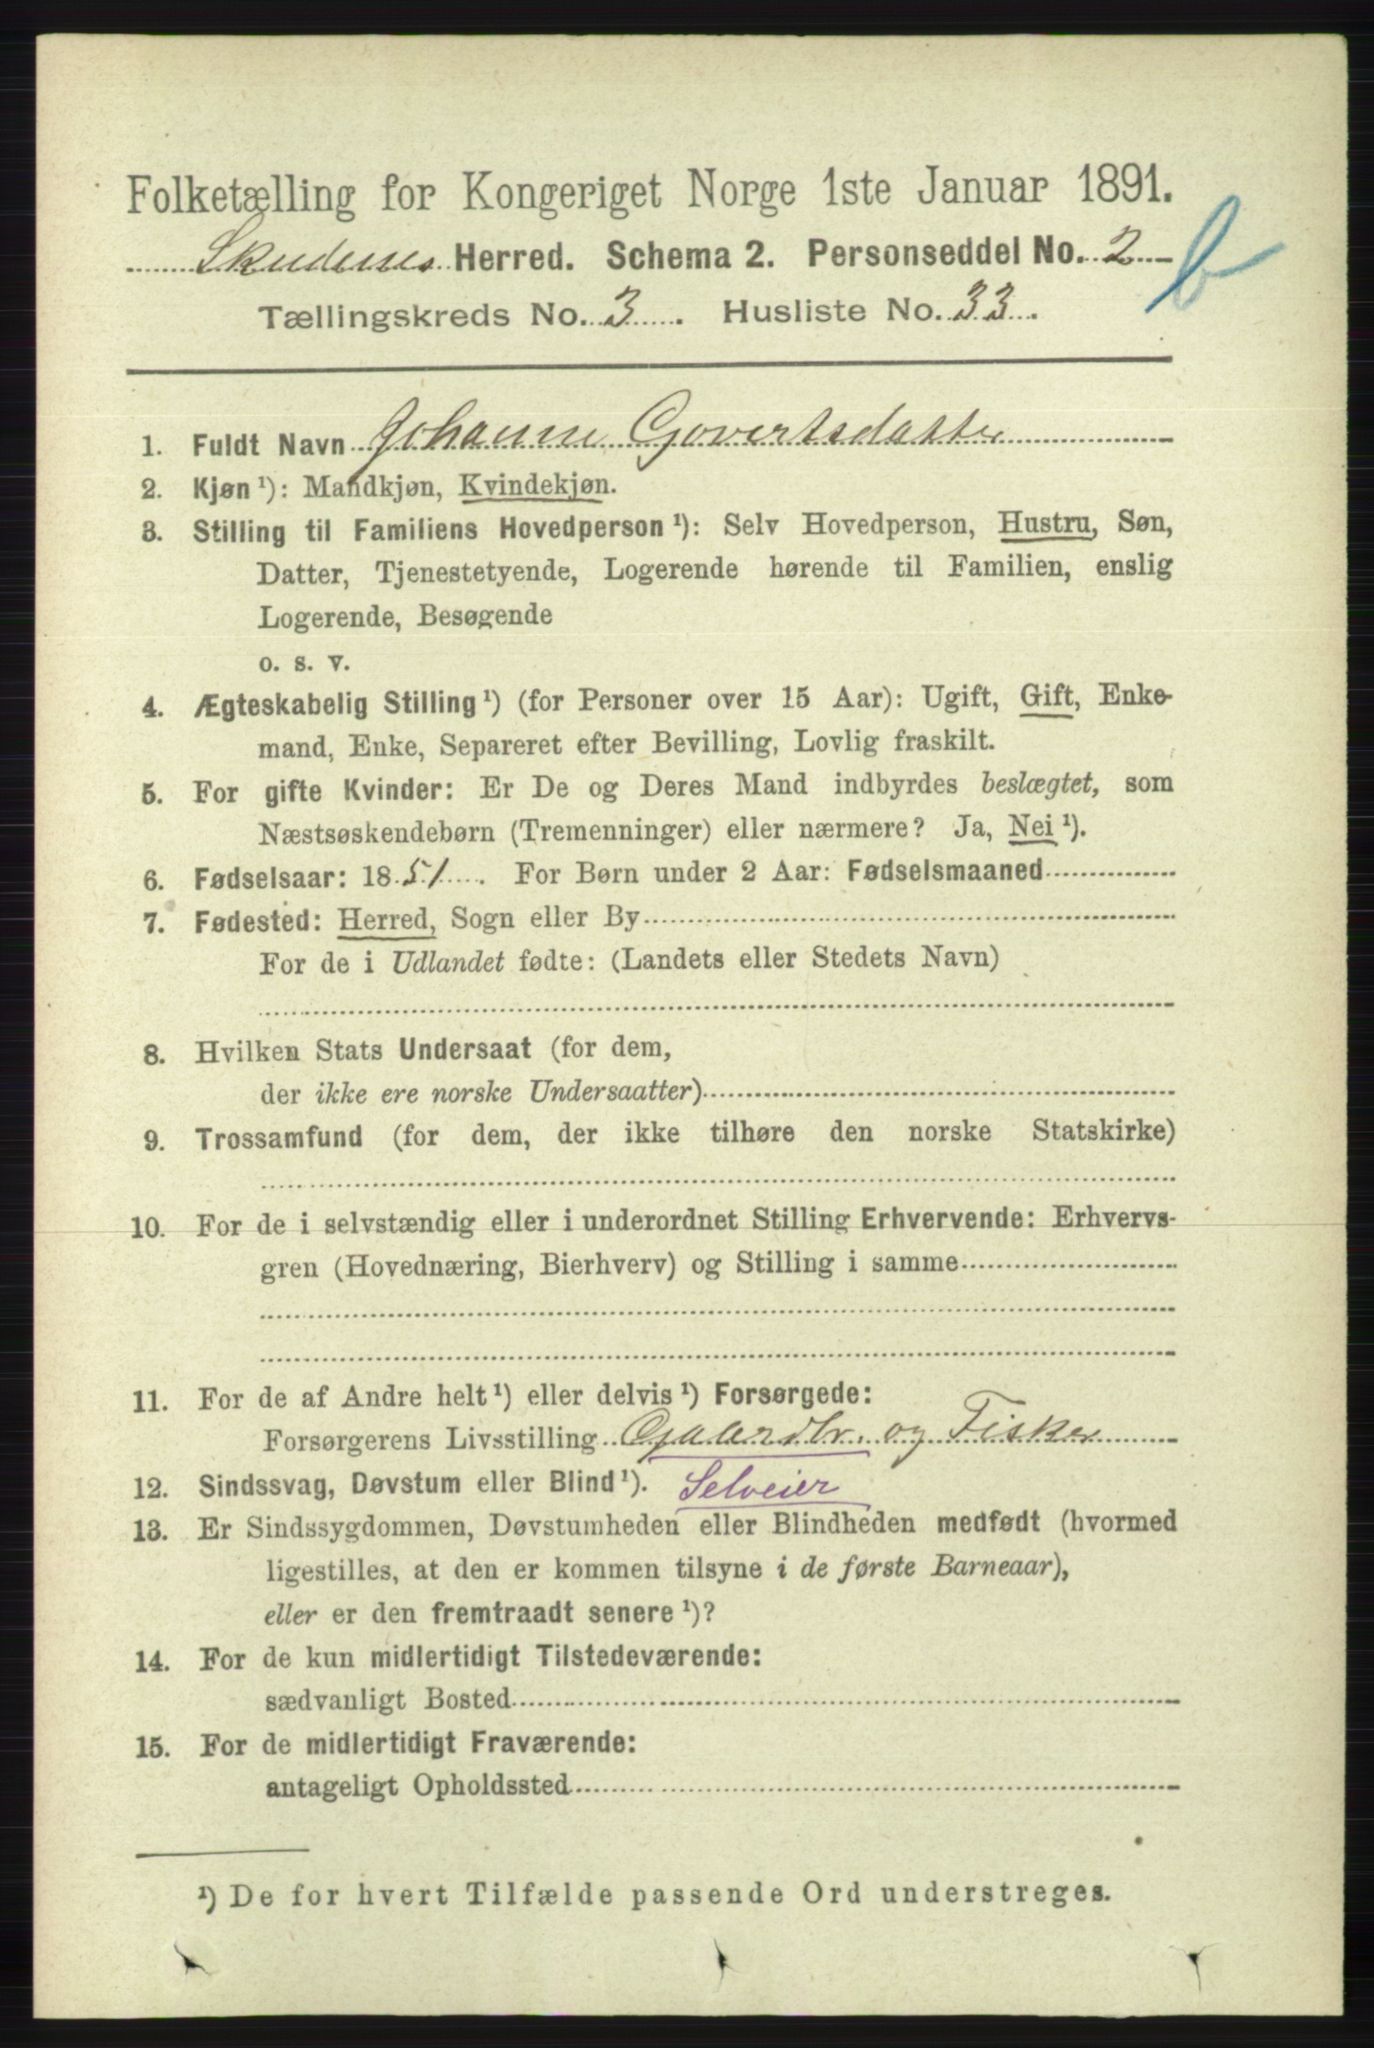 Folketælling for Kongeriget Norge 1ste Januar 1891.
Skudenes Herred. Schema 2. Personseddel No. 2 b
Tællingskreds No. 3. Husliste No. 33.
1. Fuldt Navn Johanne Govertsdatter
2. Kjøn ¹): Mandkjøn, Kvindekjøn.
3. Stilling til Familiens Hovedperson ¹): Selv Hovedperson, Hustru, Søn,
Datter, Tjenestetyende, Logerende hørende til Familien, enslig
Logerende, Besøgende
o. s. v.
4. Ægteskabelig Stilling ¹) (for Personer over 15 Aar): Ugift, Gift, Enke-
mand, Enke, Separeret efter Bevilling, Lovlig fraskilt.
5. For gifte Kvinder: Er De og Deres Mand indbyrdes beslægtet, som
Næstsøskendebørn (Tremenninger) eller nærmere? Ja, Nei ¹).
6. Fødselsaar: 1851. For Børn under 2 Aar: Fødselsmaaned
7. Fødested: Herred, Sogn eller By
For de i Udlandet fødte: (Landets eller Stedets Navn)
8. Hvilken Stats Undersaat (for dem,
der ikke ere norske Undersaatter)
9. Trossamfund (for dem, der ikke tilhøre den norske Statskirke)
10. For de i selvstændig eller i underordnet Stilling Erhvervende: Erhvervs-
gren (Hovednæring, Bierhverv) og Stilling i samme
11. For de af Andre helt ¹) eller delvis ¹) Forsørgede:
Forsørgerens Livsstilling Gaardbr. og Fisker
12. Sindssvag, Døvstum eller Blind ¹). Selveier
13. Er Sindssygdommen, Døvstumheden eller Blindheden medfødt (hvormed
ligestilles, at den er kommen tilsyne i de første Barneaar),
eller er den fremtraadt senere ¹)?
14. For de kun midlertidigt Tilstedeværende:
sædvanligt Bosted
15. For de midlertidigt Fraværende:
antageligt Opholdssted
¹) De for hvert Tilfælde passende Ord understreges.